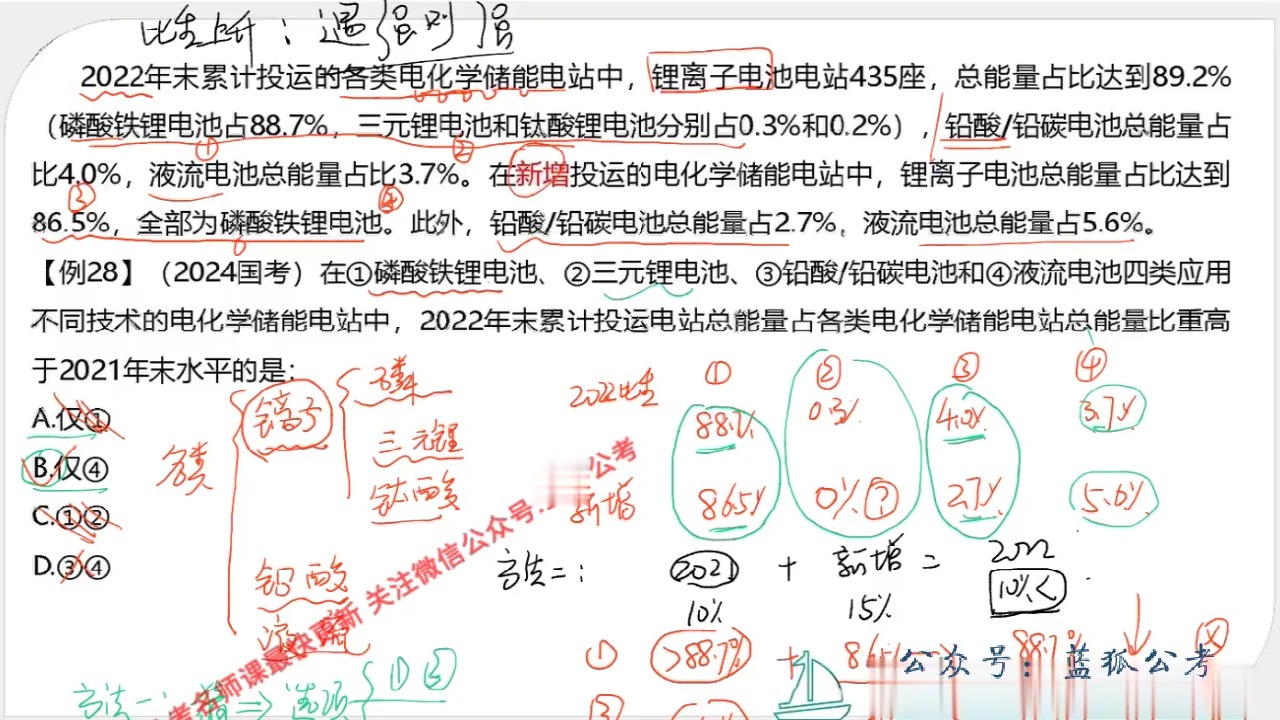 比重上升：遇强则强
2022年末累计投运的各类电化学储能电站中，锂离子电池电站435座，总能量占比达到89.2%
（磷酸铁锂电池占88.7%，三元锂电池和钛酸锂电池分别占0.3%和0.2%），铅酸/铅碳电池总能量占
①
②
比4.0%，液流电池总能量占比3.7%。在新增投运的电化学储能电站中，锂离子电池总能量占比达到
③
④
86.5%，全部为磷酸铁锂电池。此外，铅酸/铅碳电池总能量占2.7%，液流电池总能量占5.6%。
【例28】（2024国考）在①磷酸铁锂电池、②三元锂电池、③铅酸/铅碳电池和④液流电池四类应用
不同技术的电化学储能电站中，2022年末累计投运电站总能量占各类电化学储能电站总能量比重高
于2021年末水平的是：
① ② ③ ④
A.仅①
2022比重 88.7% 0.3% 4.0% 3.7%
三元锂
B.仅④
各类
新增 86.5% 0%② 2.7% 5.6%
C.①②
D.③④
方法二： 2021 + 新增 = 2022
铅酸
10% 15% 10%<
① >88.7% + 86.5% 88.7%
关注微信公众号
名师课最快更新
公考
公众号：蓝狐公考
方法一： ⇒ 选项
③